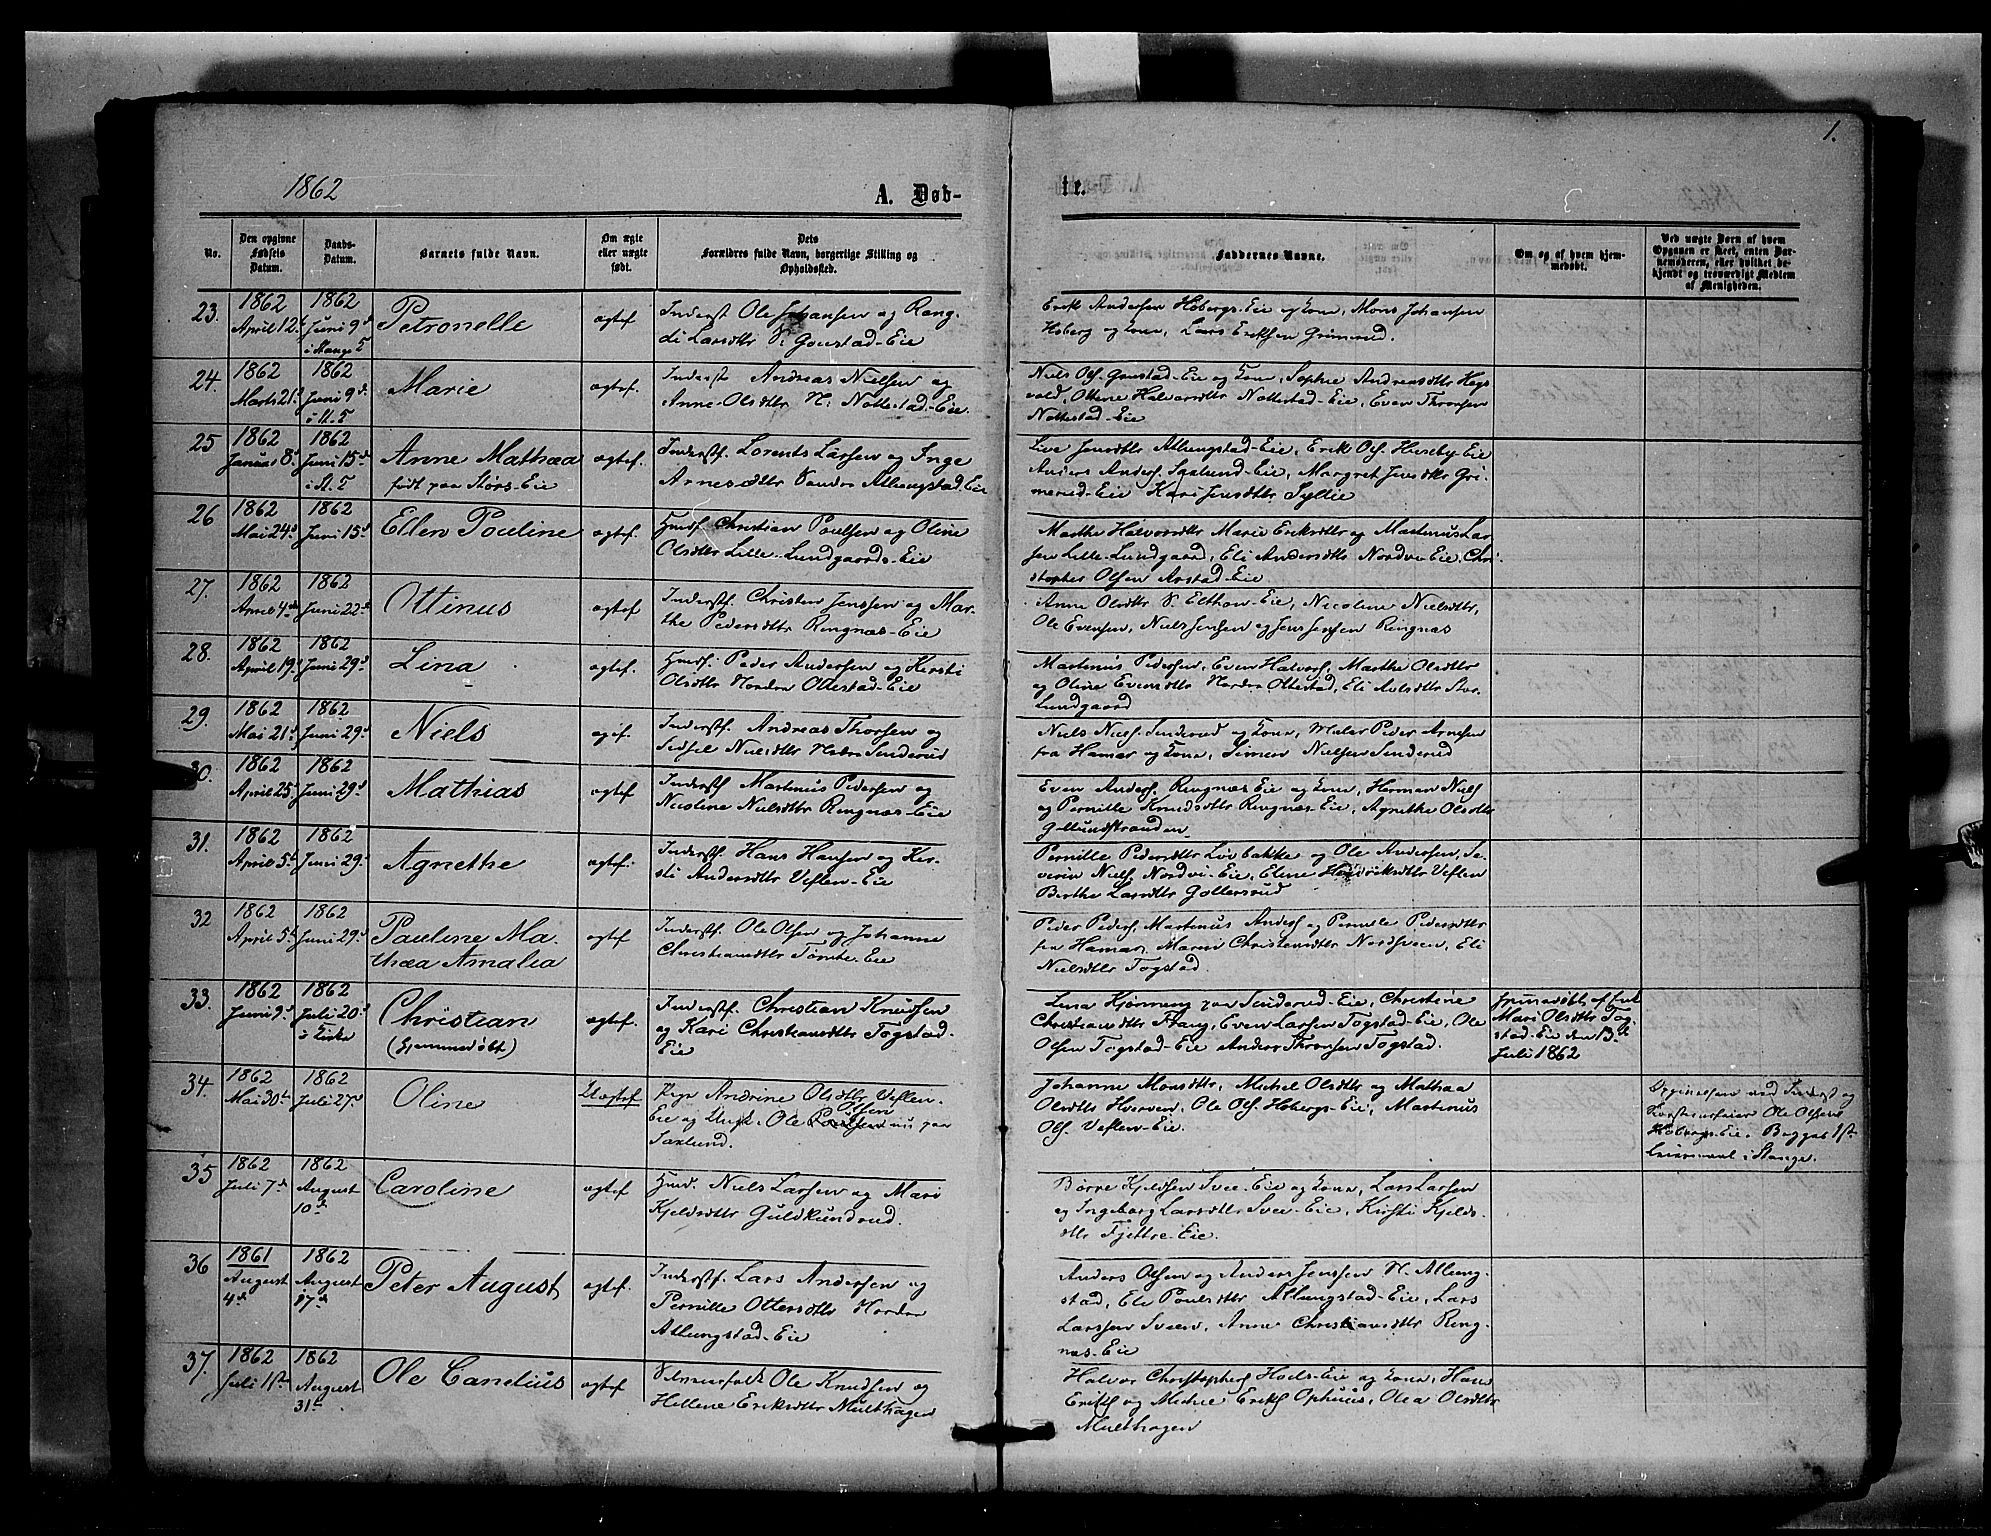 1.
1862
A. Døb-
te.
No.
Den opgivne Fødsels Datum.
Daabs-Datum.
Barnets fulde Navn.
Om ægte eller uægte født.
Dets Forældres fulde Navn, borgerlige Stilling og Opholdssted.
Faddernes Navne.
Om og af hvem hjemmedøbt.
Ved uægte Børn af hvem Opgaven er skeet, enten Barnemoderen, eller hvilket bekjendt og troværdigt Medlem af Menigheden.
23. 1862 April 12. 1862 Juni 9d i Stange Petronelle ægtef
Inderst Ole Johansen og Rang-
di Larsdtr Gonstad-Eie
Erik Andersen Hobergs-Eie og Kone, Mons Johansen
Hoberg og Kone, Lars Eriksen Grimerud.
24 1862 Marts 21. 1862 Juni 9d Marie ægtef
Inderste Andreas Nielsen og
Anne Olsdtr N: Nottestad-Eie
Niels Ols. Gonstad-Eie og Kone, Sophie Andreasdtr Hegs-
vold, Ottine Halvorsdtr Nottestad-Eie, Even Thronsen
Nottestad-Eie
25 1862 Januar 8d 1862 Juni 15d Anne Mathæa ægtef.
født paa Stórs-Eie
Inderstf. Lorents Larsen og Inge
Arnesdtr Søndre Atlungstad-Eie
Live Jensdtr Atlungstad-Eie, Erik Ols. Huseby-Eie
Anders Anders. Saxlund-Eie, Margret Jensdtr Gri-
merud-Eie Kari Jensdtr Syllie
26 1862 Mai 24d 1862 Juni 15d Ellen Pouline ægtef.
Husmf. Christian Poulsen og Oline
Olsdtr Lille-Lundgaards-Eie
Marthe Halvorsdtr Marie Eriksdtr og Martinus Lar-
sen Lille-Lundgaard, Eli Andersdtr Nordvi-Eie, Chri-
stopher Olsen Arstad-Eie
27. 1862 April 4de 1862 Juni 22d Ottinus ægtef
Inderstf. Christen Jenssen og Mar-
the Pedersdtr Ringnæs-Eie
Anne Olsdtr S. Elthon-Eie, Nicoline Nielsdtr,
Ole Evensen, Niels Jensen og Jens Jenssen Ringnæs
28. 1862 April 19. 1862 Juni 29d Lina ægtef.
Husmf. Peder Andersen og Kersti
Olsdtr Nordre Ottestad-Eie
Martinus Pedersen, Even Halvors. Marthe Olsdtr
og Oline Evensdtr Nordre Ottestad, Eli Olsdtr Stor-
Lundgaard
29. 1862 Mai 21d 1862 Juni 29d Niels ægtef.
Inderstf. Andreas Thorsen og
Sidsel Nielsdtr Nedre Sinderud
Niels Niels. Sinderud og Kone, Maler Peder Arnesen
fra Hamar og Kone, Simen Nielsen Sinderud
30. 1862 April 25. 1862 Juni 29d Mathias ægtef
Inderstf Martinus Pedersen og
Nicoline Nielsdtr Ringnæs-Eie
Even Anders. Ringnæs Eie og Kone, Herman Niels
og Pernille Knudsdtr Ringnæs-Eie, Agnethe Olsdtr
Gillundstranden
31. 1862 April 5t 1862 Juni 29. Agnethe ægtef.
Inderstf. Hans Hansen og Ker-
sti Andersdtr Veflen-Eie
Pernille Pedersdtr Lobakke og Ole Andersen, Se-
verin Niels. Nordvi-Eie, Eline Hendriksdtr Veflen
Berthe Larsdtr Gottersrud
32 1862 April 5t 1862 Juni 29d Pauline Ma-
thæa Amalia ægtef
Inderstf. Ole Olsen og Johanne
Christiansdtr Tomter-Eie
Peder Peders. Martinus Anders. og Pernille Pedersdtr
fra Hamar, Marni Christiansdtr Nordsveen, Eli
Nielsdtr Togstad.
33. 1862 Juni 9d 1862 Juli 20d i Kirke Christian ægtef.
(hjemmedøbt)
Inderstf. Christian Knudsen
og Kari Christiansdtr Togstad-
Eie
Lina Kjønning paa Sinderud-Eie, Christine
Christiansdtr Frang, Even Larsen Togstad-Eie, Ole
Olsen Togstad-Eie Anders Thronsen Togstad.
Hjemmedøbt af Enke
Mari Olsdtr Tog-
stad-Eie den 13de
Juli 1862
34. 1862 Mai 30te 1862 Juli 27d Oline Uægtef
Pige Andrine Olsdtr Veflen-
Eie og Ungk. Ole Olsen nu paa
Saxlund.
Johanne Monsdtr, Michel Olsdtr og Mathæa
Olsdtr Hverven, Ole Ols. Hobergs-Eie, Martinus
Ols. Veflen-Eie.
Opgivelsen ved Inderst og
Ole Olsen
Hobergs-Eie. Begges 1ste
Leiermaal i Stange.
35 1862 Juli 7d 1862 August 10d Caroline ægtef
Husmd. Niels Larsen og Mari
Kjeldsdtr Guldkundrud.
Børre Kjeldsen Svee-Eie og Kone, Lars Larsen
og Ingeborg Larsdtr Svee-Eie, Kirsti Kjelds-
dtr Fjettre-Eie.
36 1861 August 4d 1862 August 17d Peter August ægtef.
Inderstf. Lars Andersen og
Pernille Ottersdtr Nordre
Atlungstad-Eie
Anders Olsen og Anders Jenssen N. Atlung-
stad, Ele Poulsdtr Atlungstad-Eie, Lars
Larssen Sveen, Anne Christiansdtr Ring-
næs-Eie
37. 1862 Juli 1ste 1862 August 31t Ole Canelius ægtef
Selveierfolk Ole Knudsen og
Hellene Eriksdtr Multhagen
Halvor Christophers. Hoels-Eie og Kone, Hans
Eriks. og Michel Eriks. Ophuus, Olea Olsdtr
Multhagen